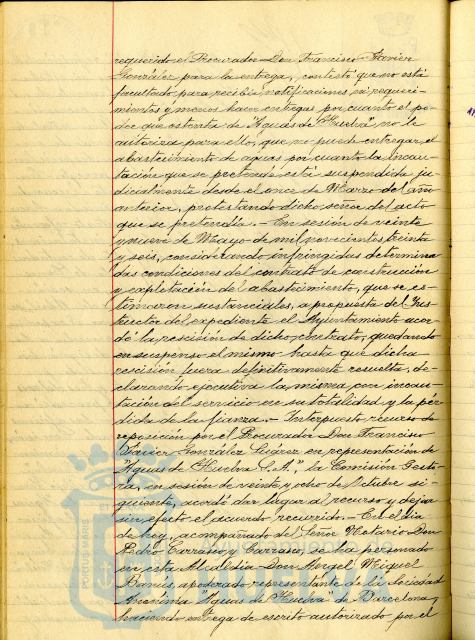 requerido el Procurador Don Francisco Javier
González para la entrega, contestó que no está
facultado para recibir notificaciones, ni requeri-
mientos y menos hacer entregas por cuanto el po-
der que ostenta de "Aguas de Huelva" no le
autoriza para ello, que no puede entregar el
abastecimiento de aguas por cuanto la incau-
tación que se pretende está suspendida ju-
dicialmente desde el once de Marzo del año
anterior, protestando dicho señor del acto
que se pretendía.- En sesión de veinte
y nueve de Mayo de mil novecientos treinta
y seis, considerando infringidas determina-
das condiciones del contrato de construcción
y explotación del abastecimiento, que se es-
timaron sustanciales, a propuesta del Ins-
tructor del expediente el Ayuntamiento acor-
dó la rescisión de dicho contrato, quedando
en suspenso el mismo hasta que dicha
rescisión fuera definitivamente resuelta, de-
clarando ejecutiva la misma con incau-
tación del servicio en su totalidad y la pér-
dida de la fianza.- Interpuesto recurso de
reposición por el Procurador Don Francisco
Javier González Suárez en representación de
"Aguas de Huelva S.A.", la Comisión Gesto-
ra, en sesión de veinte y ocho de Octubre si-
guiente, acordó dar lugar al recurso y dejar
sin efecto el acuerdo recurrido.- En el día
de hoy, acompañado del Señor Notario Don
Pedro Carrasco y Carrasco, se ha personado
en esta Alcaldía Don Angel Miguel
apoderado representante de la Sociedad
Anónima "Aguas de Huelva" de Barcelona y
haciendo entrega de escrito autorizado por el